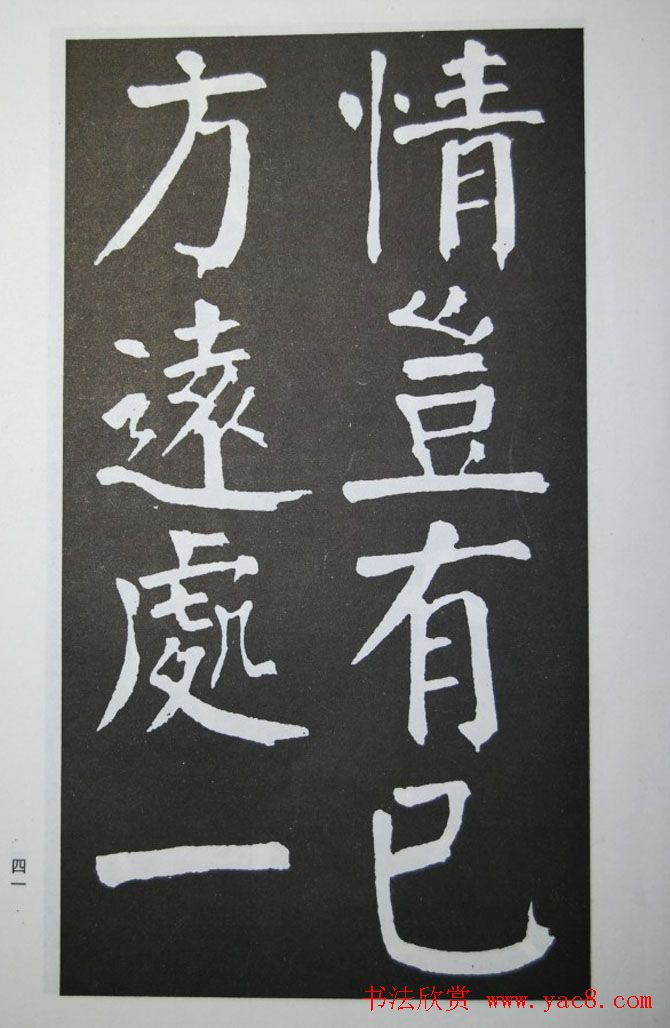 情豈有已
方遠處一
四一
书法欣赏 www.yac8.com